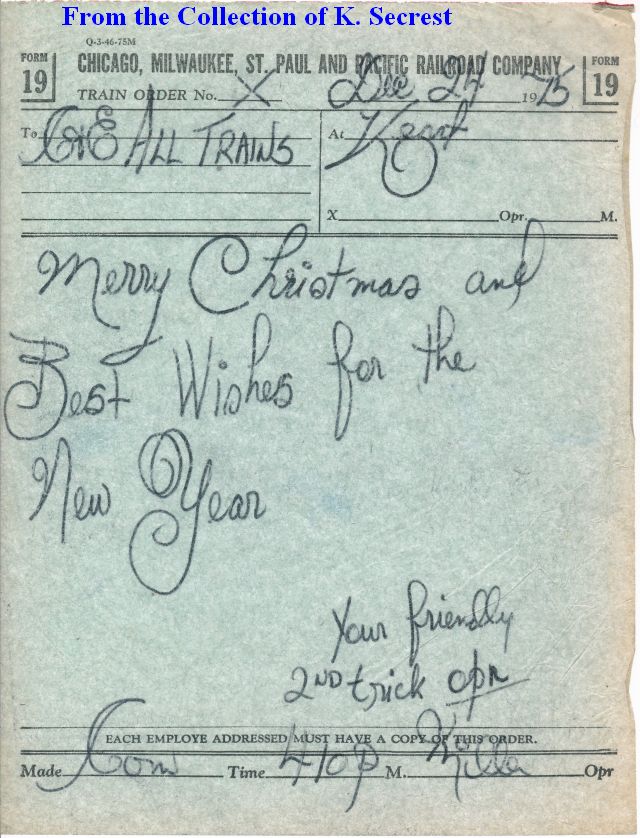 From the Collection of K. Secrest
Q-3-46-75M
FORM 19
CHICAGO, MILWAUKEE, ST. PAUL AND PACIFIC RAILROAD COMPANY
FORM 19
TRAIN ORDER No. X Dec 24 1975
To C&E ALL TRAINS
At Kent
X Opr. M.
Merry Christmas and
Best Wishes for the
New Year
Your friendly
2ND trick opr
EACH EMPLOYE ADDRESSED MUST HAVE A COPY OF THIS ORDER.
Made Com Time 410P M. Opr